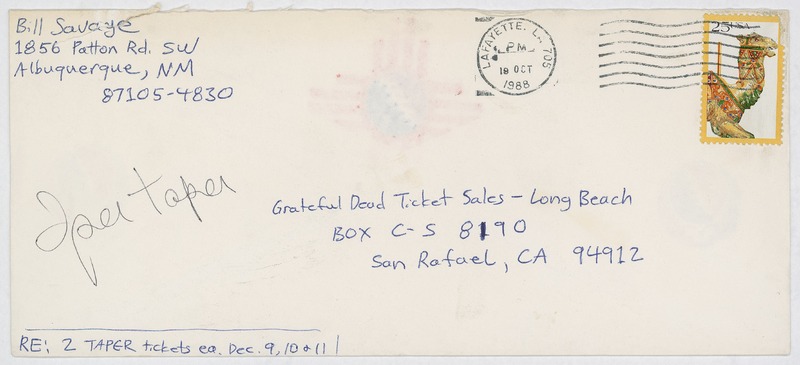 Bill Savage
1856 Patton Rd. SW
Albuquerque, NM
87105-4830
LAFAYETTE, LA 705
PM
18 OCT
1988
25 USA
2 per taper
Grateful Dead Ticket Sales - Long Beach
BOX C-S 8190
San Rafael, CA 94912
RE: 2 TAPER tickets ea. Dec. 9, 10 & 11